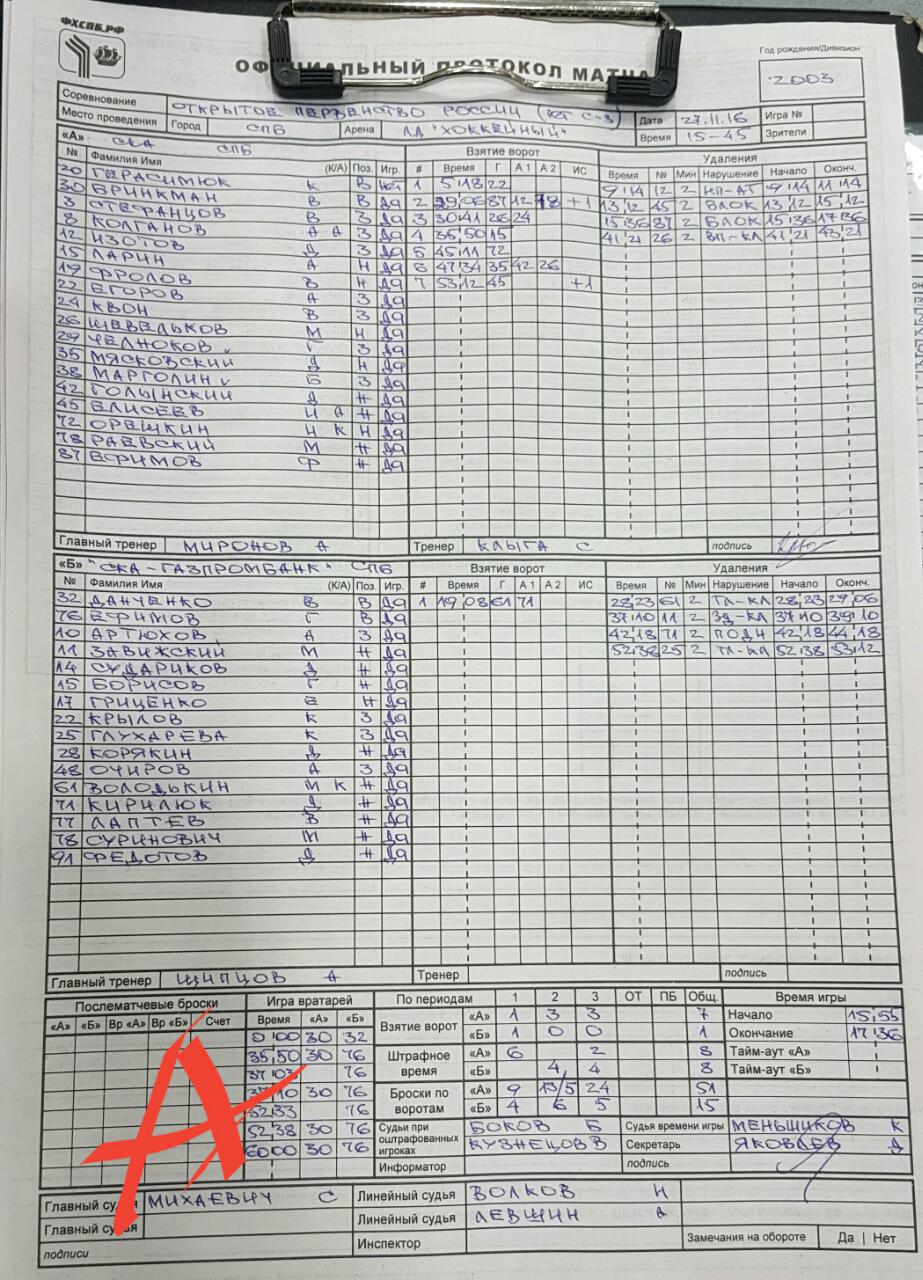 ФХСПБ.РФ
ОФИЦИАЛЬНЫЙ ПРОТОКОЛ МАТЧА
Год рождения/Дивизион
2003
Соревнование ОТКРЫТОЕ ПЕРВЕНСТВО РОССИИ ( С-З)
Дата 27.11.16 Игра №
Место проведения Город СПБ Арена ЛД "ХОККЕЙНЫЙ"
Время 15-45 Зрители
«А» СКА СПБ Взятие ворот Удаления
№ Фамилия Имя (К/А) Поз. Игр. # Время Г А1 А2 ИС Время № Мин Нарушение Начало Оконч.
20 ГЕРАСИМЮК К В Нет 1 5 18 22 9 14 12 2 НП-АТ 9 14 11 14
30 БРИНКМАН В В Да 2 29 06 87 12 78 +1 13 12 45 2 БЛОК 13 12 15 12
3 СТЕФАНЦОВ В З Да 3 30 41 26 24 15 36 87 2 БЛОК 15 36 17 36
8 КОЛГАНОВ А А З Да 4 35 50 15 41 21 26 2 ВП-КЛ 41 21 43 21
12 ИЗОТОВ Д З Да 5 45 11 72
15 ЛАРИН А Н Да 6 47 34 35 42 26
19 ФРОЛОВ В Н Да 7 53 12 45 +1
22 ЕГОРОВ А З Да
24 КВОН В З Да
26 ШЕВЕЛЬКОВ М Н Да
29 ЧЕЛНОКОВ Г З Да
35 МЯСКОВСКИЙ Д Н Да
38 МАРГОЛИН Б З Да
42 ГОЛЫНСКИЙ Д Н Да
45 ЕЛИСЕЕВ И А Н Да
72 ОРЕШКИН И К Н Да
78 РАЕВСКИЙ М Н Да
87 ЕФИМОВ Ф Н Да
Главный тренер МИРОНОВ А Тренер КЛЫГА С подпись
«Б» "СКА-ГАЗПРОМБАНК" СПБ Взятие ворот Удаления
№ Фамилия Имя (К/А) Поз. Игр. # Время Г А1 А2 ИС Время № Мин Нарушение Начало Оконч.
32 ДАНЧЕНКО В В Да 1 19 08 61 71 28 23 61 2 ТЛ-КЛ 28 23 29 06
76 ЕФИМОВ Г В Да 37 10 11 2 ЗД-КЛ 37 10 39 10
10 АРТЮХОВ А З Да 42 18 71 2 ПОДН 42 18 44 18
11 ЗАВИЖСКИЙ М Н Да 52 38 25 2 ТЛ-КЛ 52 38 53 12
14 СУДАРИКОВ Д Н Да
15 БОРИСОВ Г Н Да
17 ГРИЦЕНКО Е Н Да
22 КРЫЛОВ К З Да
25 ГЛУХАРЕВА К З Да
28 КОРЯКИН Д Н Да
48 ОЧИРОВ А З Да
61 ВОЛОДЬКИН М К Н Да
71 КИРИЛЮК Д Н Да
77 ЛАПТЕВ З Н Да
78 СУРИНОВИЧ И Н Да
91 ФЕДОТОВ Д Н Да
Главный тренер ЩИПЦОВ А Тренер подпись
Послематчевые броски Игра вратарей По периодам 1 2 3 ОТ ПБ Общ. Время игры
«А» «Б» Вр «А» Вр «Б» Счет Время «А» «Б»
Взятие ворот «А» 1 3 3 7 Начало 15 55
0 00 30 32 «Б» 1 0 0 1 Окончание 17 36
35,50 30 76 Штрафное время «А» 6 2 8 Тайм-аут «А»
37 03 76 «Б» 4 4 8 Тайм-аут «Б»
37 10 30 76 Броски по воротам «А» 9 13/5 24 51
52 33 76 «Б» 4 6 5 15
52 38 30 76 Судьи при оштрафованных игроках БОКОВ Б Судья времени игры МЕНЬШИКОВ К
60 00 30 76 КУЗНЕЦОВ В Секретарь ЯКОВЛЕВ Д
Информатор подпись
А
Главный судья МИХАЕВИЧ С Линейный судья ВОЛКОВ Н
Главный судья Линейный судья ЛЕВШИН А
подписи Инспектор Замечания на обороте Да | Нет